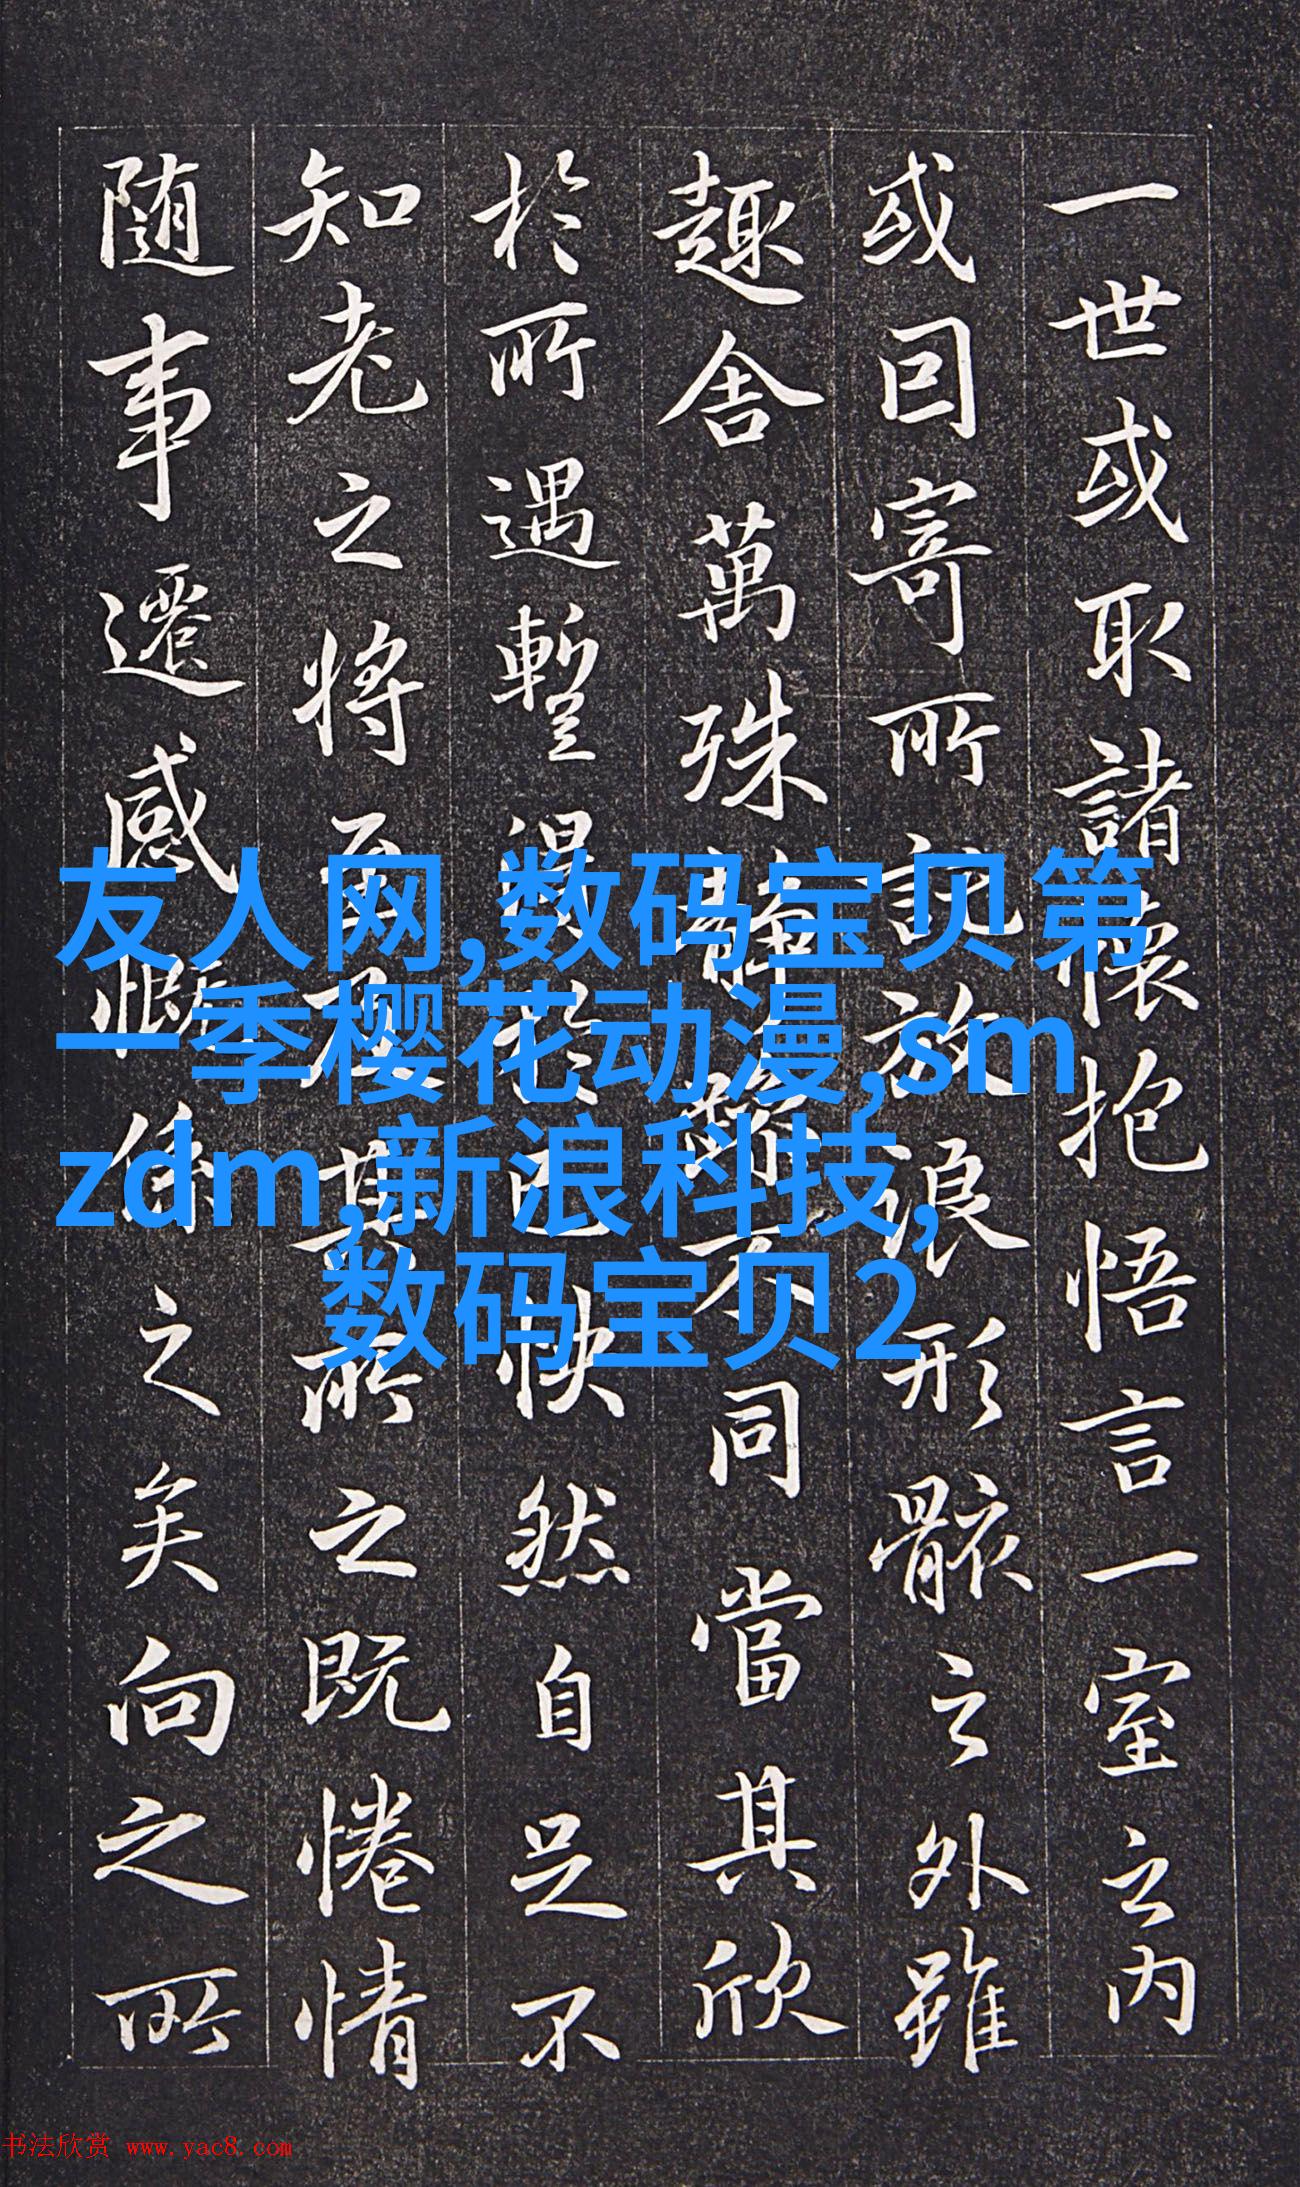 一世或取諸懷抱悟言一室之内
或囙寄所託放浪形骸之外雖
趣舍萬殊静躁不同當其欣
於所遇暫得於己快然自足不
知老之将至及其所之既惓情
随事遷感慨係之矣向之所
友人网,数码宝贝第
一季樱花动漫,sm
zdm,新浪科技,
数码宝贝2
书法欣赏 www.yac8.com